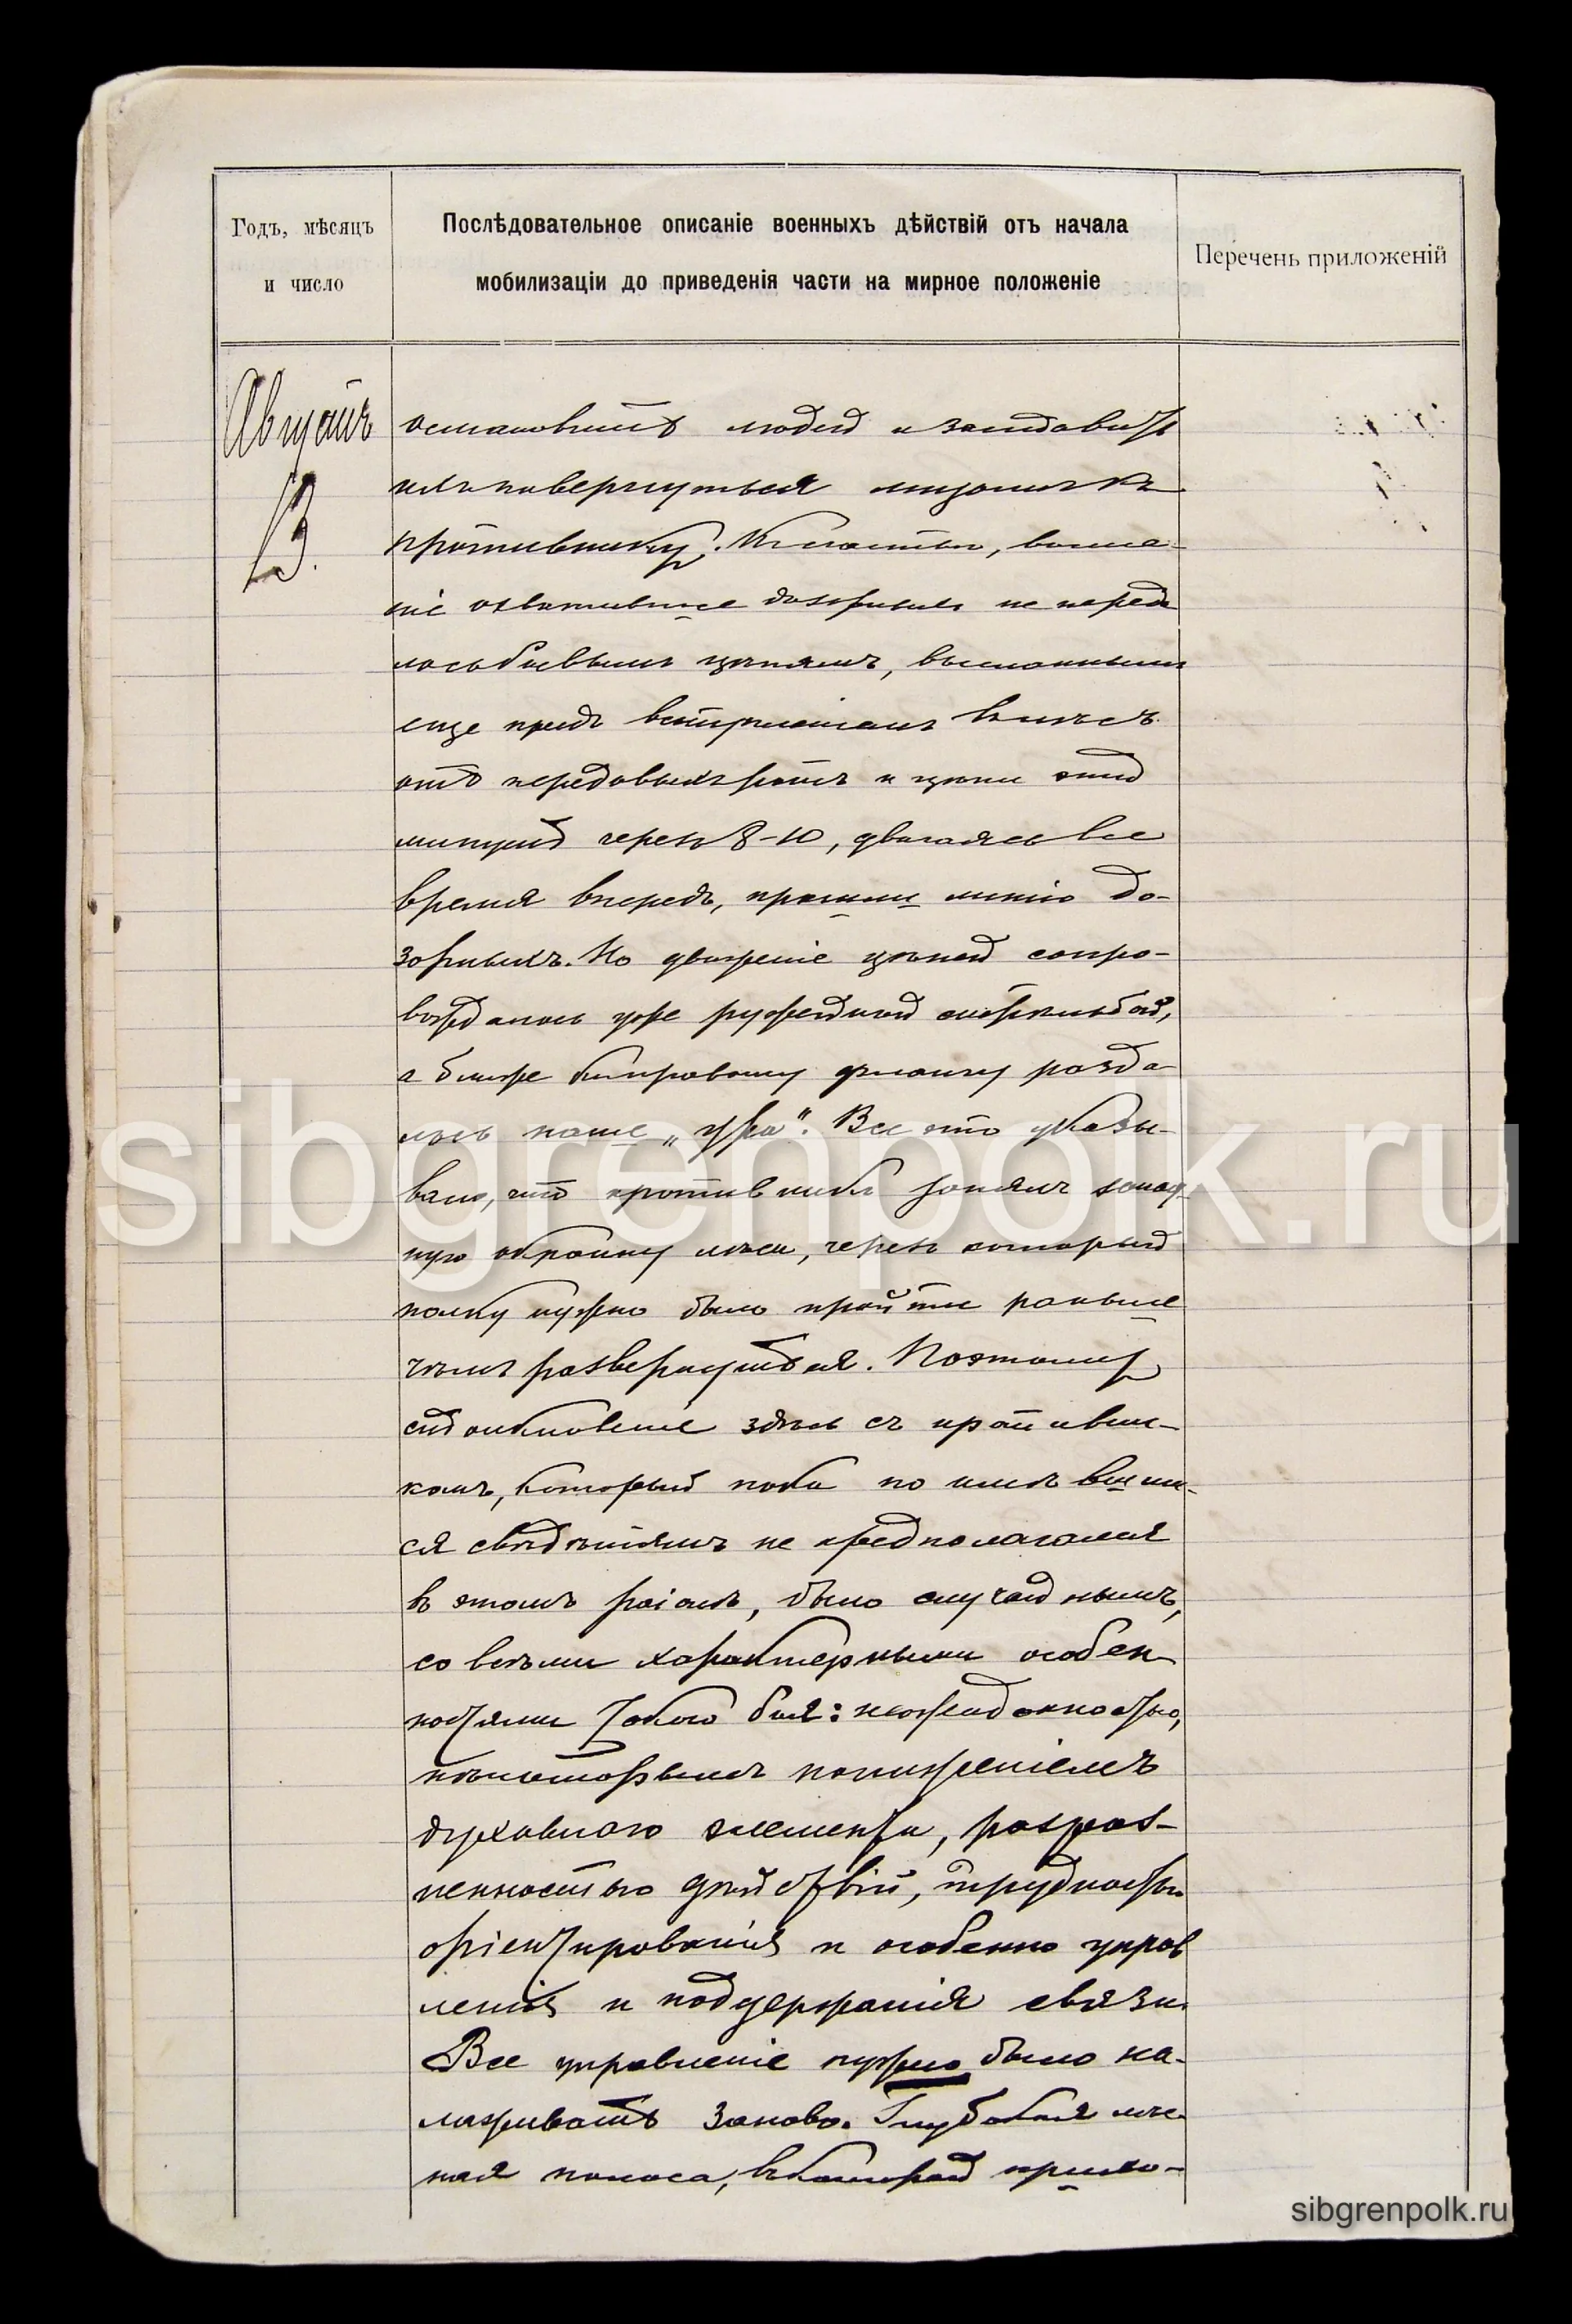 Годъ, мѣсяцъ
и число
Послѣдовательное описаніе военныхъ дѣйствій отъ начала
мобилизаціи до приведенія части на мирное положеніе
Перечень приложеній
Августъ
13.
остановить людей и заставить
ихъ повернуться лицомъ къ
противнику. Къ счастью, волне-
ніе охватившее дозорныхъ не переда
лось боевымъ цѣпямъ, высланнымъ
еще предъ вступленіемъ въ лѣсъ
отъ передовыхъ ротъ и цѣпи эти
минутъ черезъ 8-10, двигаясь все
время впередъ, прошли линію до-
зорныхъ. Но движеніе цѣпей сопро-
вождалось уже ружейной стрѣльбой,
а ближе къ правому флангу разда
лось наше „ура". Все это указы-
вало, что противникъ занялъ запад
ную окраину лѣса, черезъ который
полку нужно было пройти раньше
чѣмъ развернуться. Поэтому
столкновеніе здѣсь съ противни-
комъ, который пока по имѣвшим-
ся свѣдѣніямъ не предполагался
въ этомъ раіонѣ, было случайнымъ,
со всѣми характерными особен
ностями такого боя: неожиданностью,
нѣкоторымъ пониженіемъ
духовнаго элемента, разроз-
ненностью дѣйствій, трудностью
оріентированія и особенно управ
ленія и поддержанія связи.
Все управленіе нужно было на-
лаживать заново. Глубокая лѣс-
ная полоса, въ которой прихо-
sibgrenpolk.ru
sibgrenpolk.ru